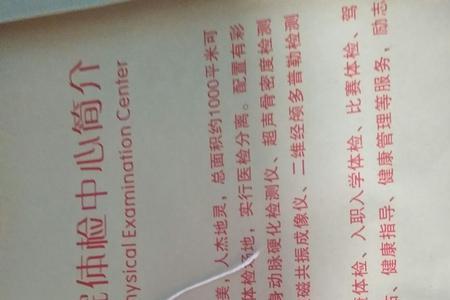 体检中心简介
hysical Examination Center
美，人杰地灵，总面积约1000平米可
体检场地，实行医检分离。配置有彩
身动脉硬化检测仪、超声骨密度检测
磁共振成像仪、二维经颅多普勒检测
体检、入职入学体检、比赛体检、驾
、健康指导、健康管理等服务，励志